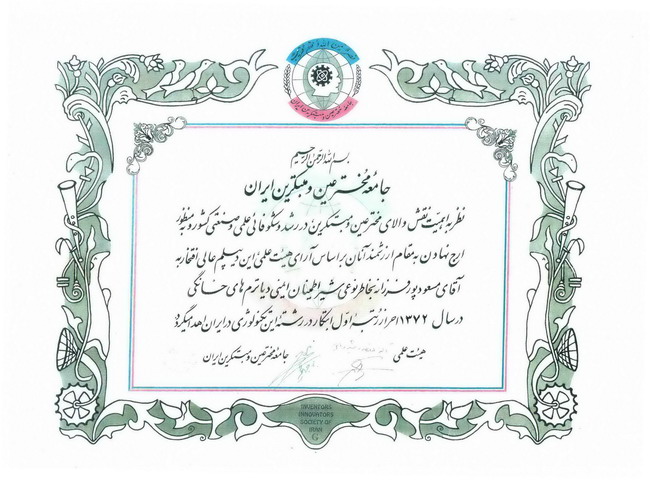 بسم الله الرحمن الرحیم
جامعه مخترعین و مبتکرین ایران
نظر به اهمیت نقش والای مخترعین و مبتکرین در رشد و شکوفائی علمی و صنعتی کشور و به منظور
ارج نهادن به مقام ارزشمند آنان بر اساس آرای هیئت علمی این دیپلم عالی افتخار به
آقای مسعود پورفرزانه بخاطر نوعی شیر اطمینان ایمنی دیاترم های خانگی
در سال ۱۳۷۲ احراز رتبه اول ابتکار در رشته این تکنولوژی در ایران اهدا میگردد
هیئت علمی
جامعه مخترعین و مبتکرین ایران
INVENTORS
INNOVATORS
SOCIETY OF
IRAN
G